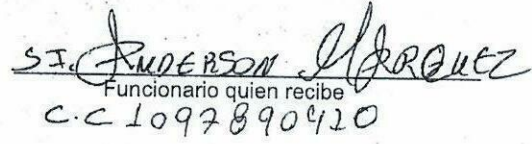 SI. ANDERSON MÁRQUEZ
Funcionario quien recibe
C.C 1097890420